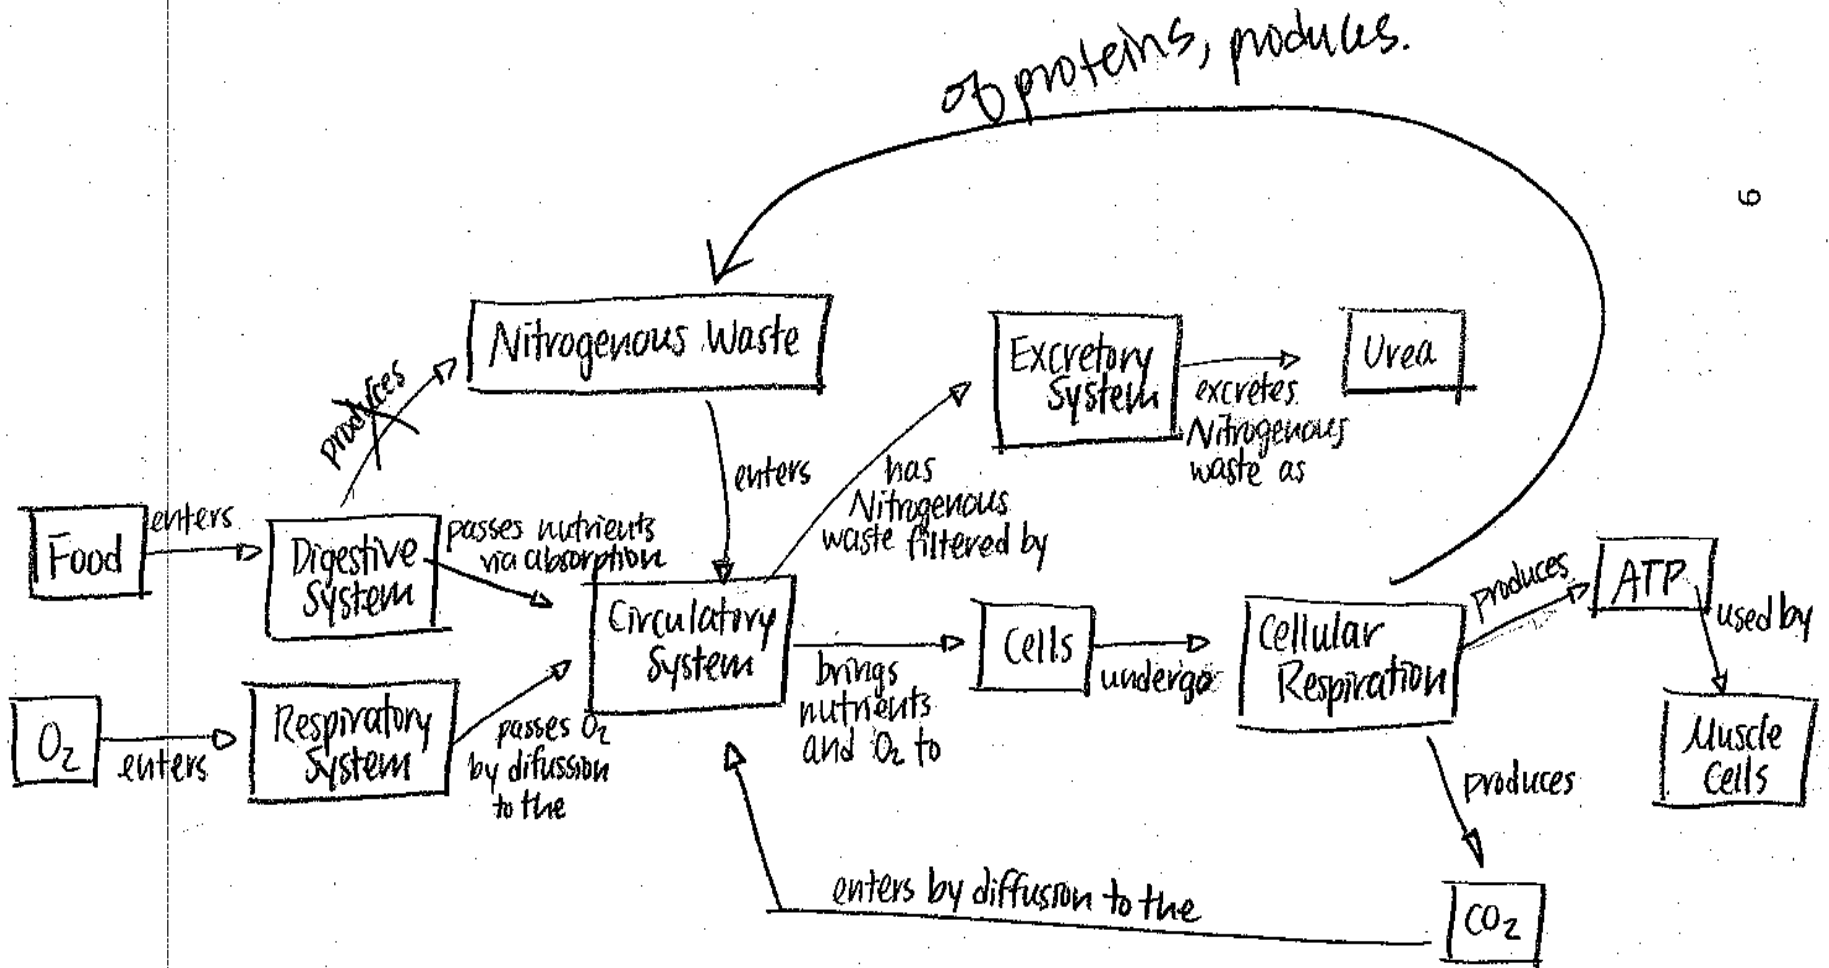 of proteins, produces.
6
Nitrogenous Waste
Excretory
System
excretes
Nitrogenous
waste as
Urea
produces
enters
has
Nitrogenous
waste filtered by
Food
enters
Digestive
System
passes nutrients
via absorption
Circulatory
System
brings
nutrients
and O₂ to
Cells
undergo
Cellular
Respiration
produces
ATP
used by
Muscle
Cells
O₂
enters
Respiratory
System
passes O₂
by difussion
to the
produces
CO₂
enters by diffusion to the